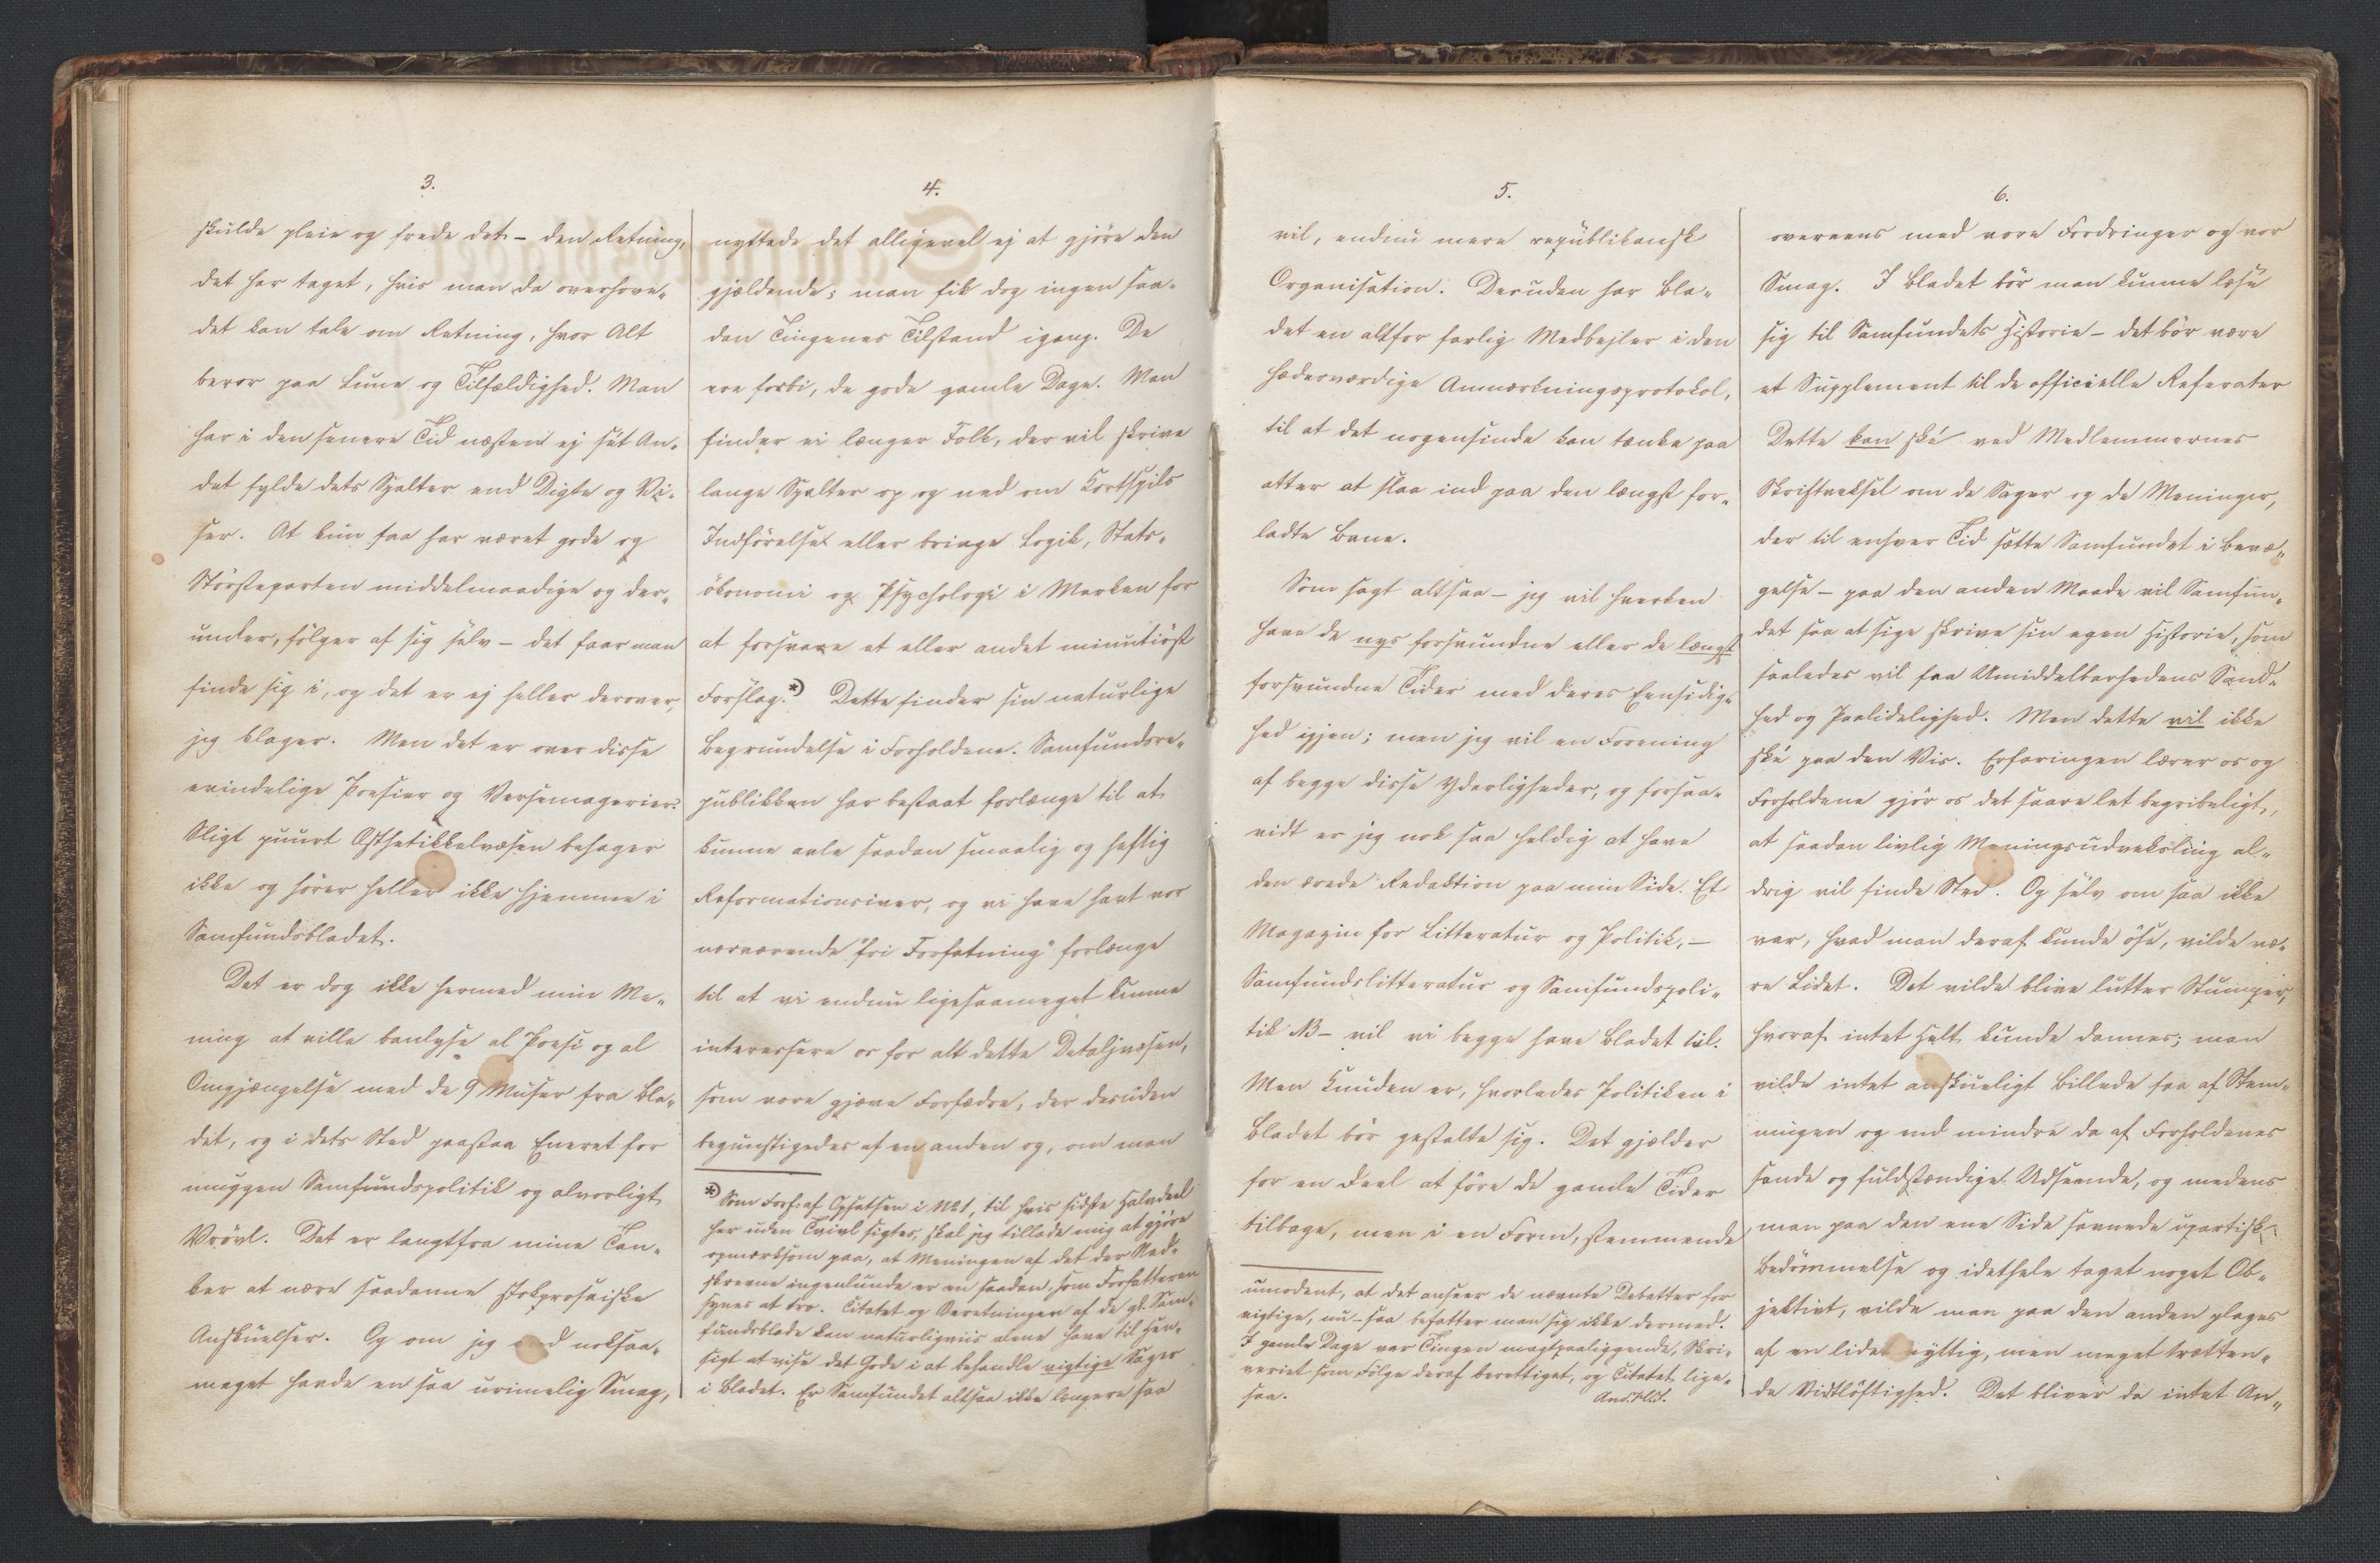 3.
skulde pleie og frede det – den Retning,
det har taget, hvis man da overhove„
det kan tale om Retning, hvor Alt
beror paa Lune og Tilfældighed. Man
har i den senere Tid næsten ej sét An„
det fylde dets Spalter end Digte og Vi„
ser. At kun faa har været gode og
Störsteparten middelmaadige og der„
under, fölger af sig selv – det faar man
finde sig i, og det er ej heller derover,
jeg klager. Men det er over disse
evindelige Poesier og Versemagerier.
Sligt puurt Æsthetikkelvæsen behager
ikke og hörer heller ikke hjemme i
Samfundsbladet.
Det er dog ikke hermed min Me„
ning at ville banlyse al Poesi og al
Omgjængelse med de 9 Muser fra Bla„
det, og i dets Sted paastaa Eneret for
muggen Samfundspolitik og alvorligt
Vrövl. Det er langtfra mine Tan„
ker at nære saadanne stokprosaiske
Anskuelser. Og om jeg end noksaa„
meget havde en saa urimelig Smag,
4.
nyttede det alligevel ej at gjöre den
gjældende; man fik dog ingen saa„
dan Tingenes Tilstand igang. De
ere forbi, de gode gamle Dage. Man
finder ei længer Folk, der vil skrive
lange Spalter op og ned om Kortspils
Indförelse eller bringe Logik, Stats„
ökonomi og Psychologi i Marken for
at forsvare et eller andet minutiöst
Forslag.*) Dette finder sin naturlige
Begrundelse i Forholdene. Samfundsre„
publikken har bestaat forlænge til at
kunne avle saadan smaalig og heftig
Reformationsiver, og vi have havt vor
nærværende "fri Forfatning" forlænge
til at vi endnu ligesaameget kunne
interessere os for alt dette Detaljvæsen,
som vore gjæve Forfædre, der desuden
begunstigedes af en anden og, om man
*) Som Forf. af Opsatsen i No 1, til hvis sidste Halvdeel
her uden Tvivl sigtes, skal jeg tillade mig at gjöre
opmærksom paa, at Meningen af det der Ned„
skrevne ingenlunde er en saadan, som Forfatteren
synes at tro. Citatet og Beretningen af de gl. Sam„
fundsblade kan naturligviis alene have til Hen„
sigt at vise det Gode i at behandle vigtige Sager
i Bladet. Er Samfundet altsaa ikke længere saa
5.
vil, endnu mere republikansk
Organisation. Desuden har Bla„
det en altfor farlig Medbejler i den
hæderværdige Anmærkningsprotokol,
til at det nogensinde kan tænke paa
atter at slaa ind paa den længst for„
ladte Bane.
Som sagt altsaa – jeg vil hverken
have de nys forsvundne eller de længst
forsvundne Tider med deres Eensidig„
hed igjen; men jeg vil en Forening
af begge disse Yderligheder, og forsaa„
vidt er jeg nok saa heldig at have
den ærede Redaktion paa min Side. Et
Magazin for Litteratur og Politik, –
Samfundslitteratur og Samfundspoli„
tik NB – vil vi begge have Bladet til.
Men Knuden er, hvorledes Politiken i
Bladet bör gestalte sig. Det gjælder
for en Deel at före de gamle Tider
tilbage, men i en Form, stemmende
umodent, at det anseer de nævnte Debatter for
vigtige, nu – saa befatter man sig ikke dermed.
I gamle Dage var Tingen magtpaaliggende, Skri„
veriet som Fölge deraf berettiget, og Citatet lige„
saa.
6.
overeens med vore Fordringer og vor
Smag. I Bladet bör man kunne læse
sig til Samfundets Historie – det bör være
et Supplement til de officielle Referater
Dette kan ské ved Medlemmernes
Skriftveksel om de Sager og de Meninger,
der til enhver Tid sætte Samfundet i Bevæ„
gelse – paa den anden Maade vil Samfun„
det saa at sige skrive sin egen Historie, som
saaledes vil faa Umiddelbarhedens Sand„
hed og Paalidelighed. Men dette vil ikke
ské paa den Vis. Erfaringen lærer os og
Forholdene gjör os det saare let begribeligt,
at saadan livlig Meningsudveksling al„
drig vil finde Sted. Og selv om saa ikke
var, hvad man deraf kunde öse, vilde væ„
re Lidet. Det vilde blive lutter Stumper,
hvoraf intet Helt kunde dannes; man
vilde intet anskueligt Billede faa af Stem„
ningen og end mindre da af Forholdenes
sande og fuldstændige Udseende, og medens
man paa den ene Side savnede upartisk
Bedömmelse og idethele taget noget Ob„
jektivt, vilde man paa den anden plages
af en lidet nyttig, men meget trætten„
de Vidtlöftighed. Det bliver da intet An„